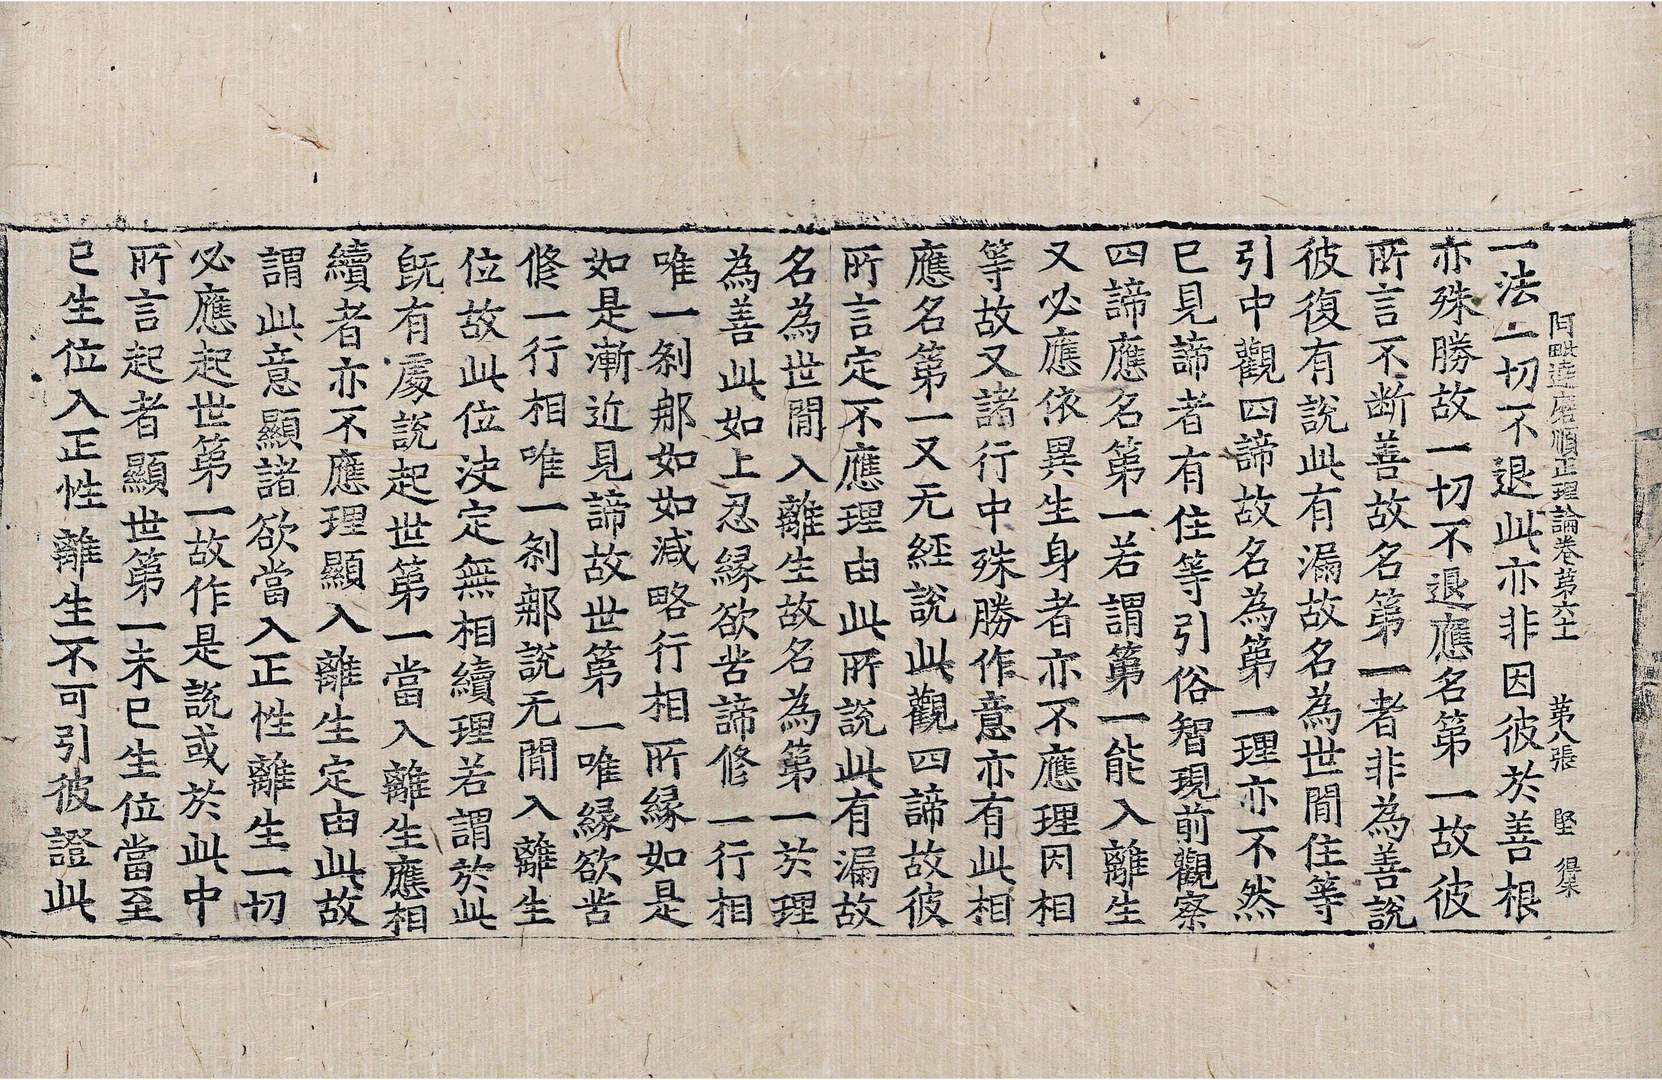 阿毗達磨順正理論卷第六十二　第八張　堅　得榮
一法一切不退此亦非因彼於善根
亦殊勝故一切不退應名第一故彼
所言不断善故名第一者非為善說
彼復有說此有漏故名為世間住等
引中觀四諦故名為第一理亦不然
已見諦者有住等引俗智現前觀察
四諦應名第一若謂第一能入離生
又必應依異生身者亦不應理因相
等故又諸行中殊勝作意亦有此相
應名第一又无經說此觀四諦故彼
所言定不應理由此所說此有漏故
名為世間入離生故名為第一於理
為善此如上忍緣欲苦諦修一行相
唯一剎那如如減略行相所緣如是
如是漸近見諦故世第一唯緣欲苦
修一行相唯一剎那說无間入離生
位故此位決定無相續理若謂於此
旣有處說起世第一當入離生應相
續者亦不應理顯入離生定由此故
謂此意顯諸欲當入正性離生一切
必應起世第一故作是說或於此中
所言起者顯世第一未已生位當至
已生位入正性離生不可引彼證此